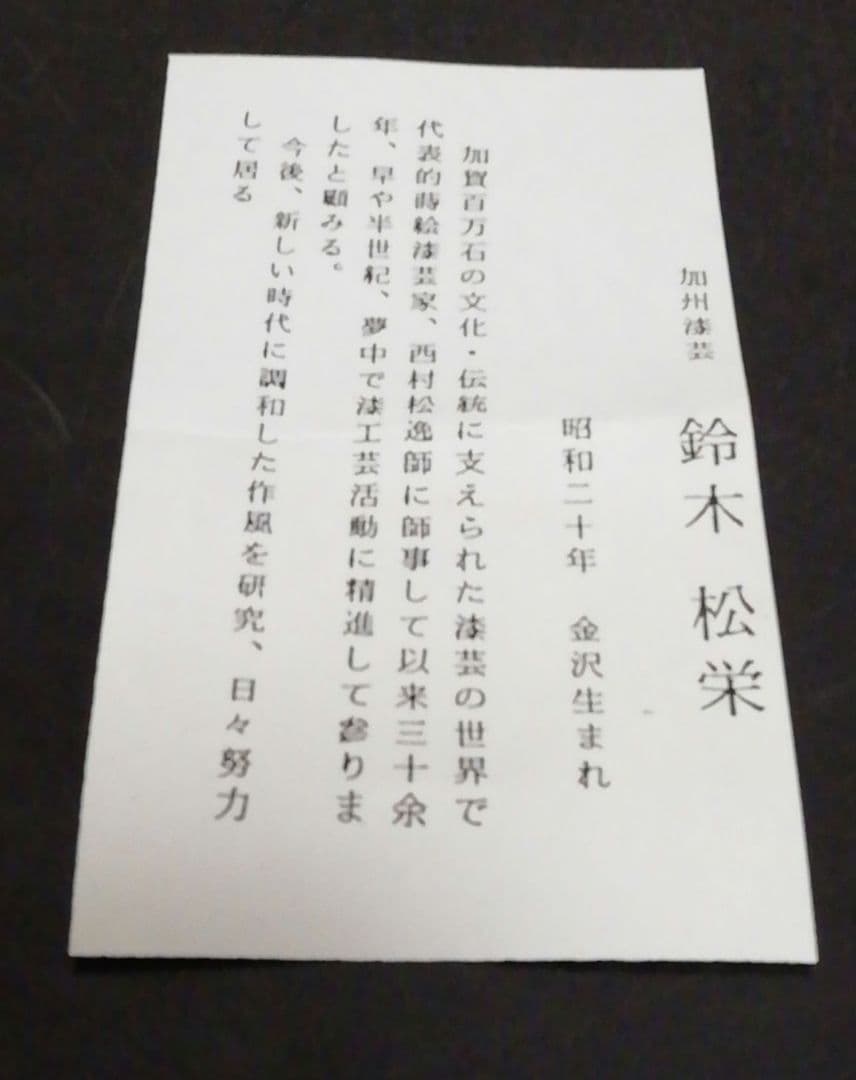 加州漆芸 鈴木 松栄
昭和二十年 金沢生まれ
加賀百万石の文化・伝統に支えられた漆芸の世界で
代表的蒔絵漆芸家、西村松逸師に師事して以来三十余
年、早や半世紀、夢中で漆工芸活動に精進して参りま
したと顧みる。
今後、新しい時代に調和した作風を研究、日々努力
して居る